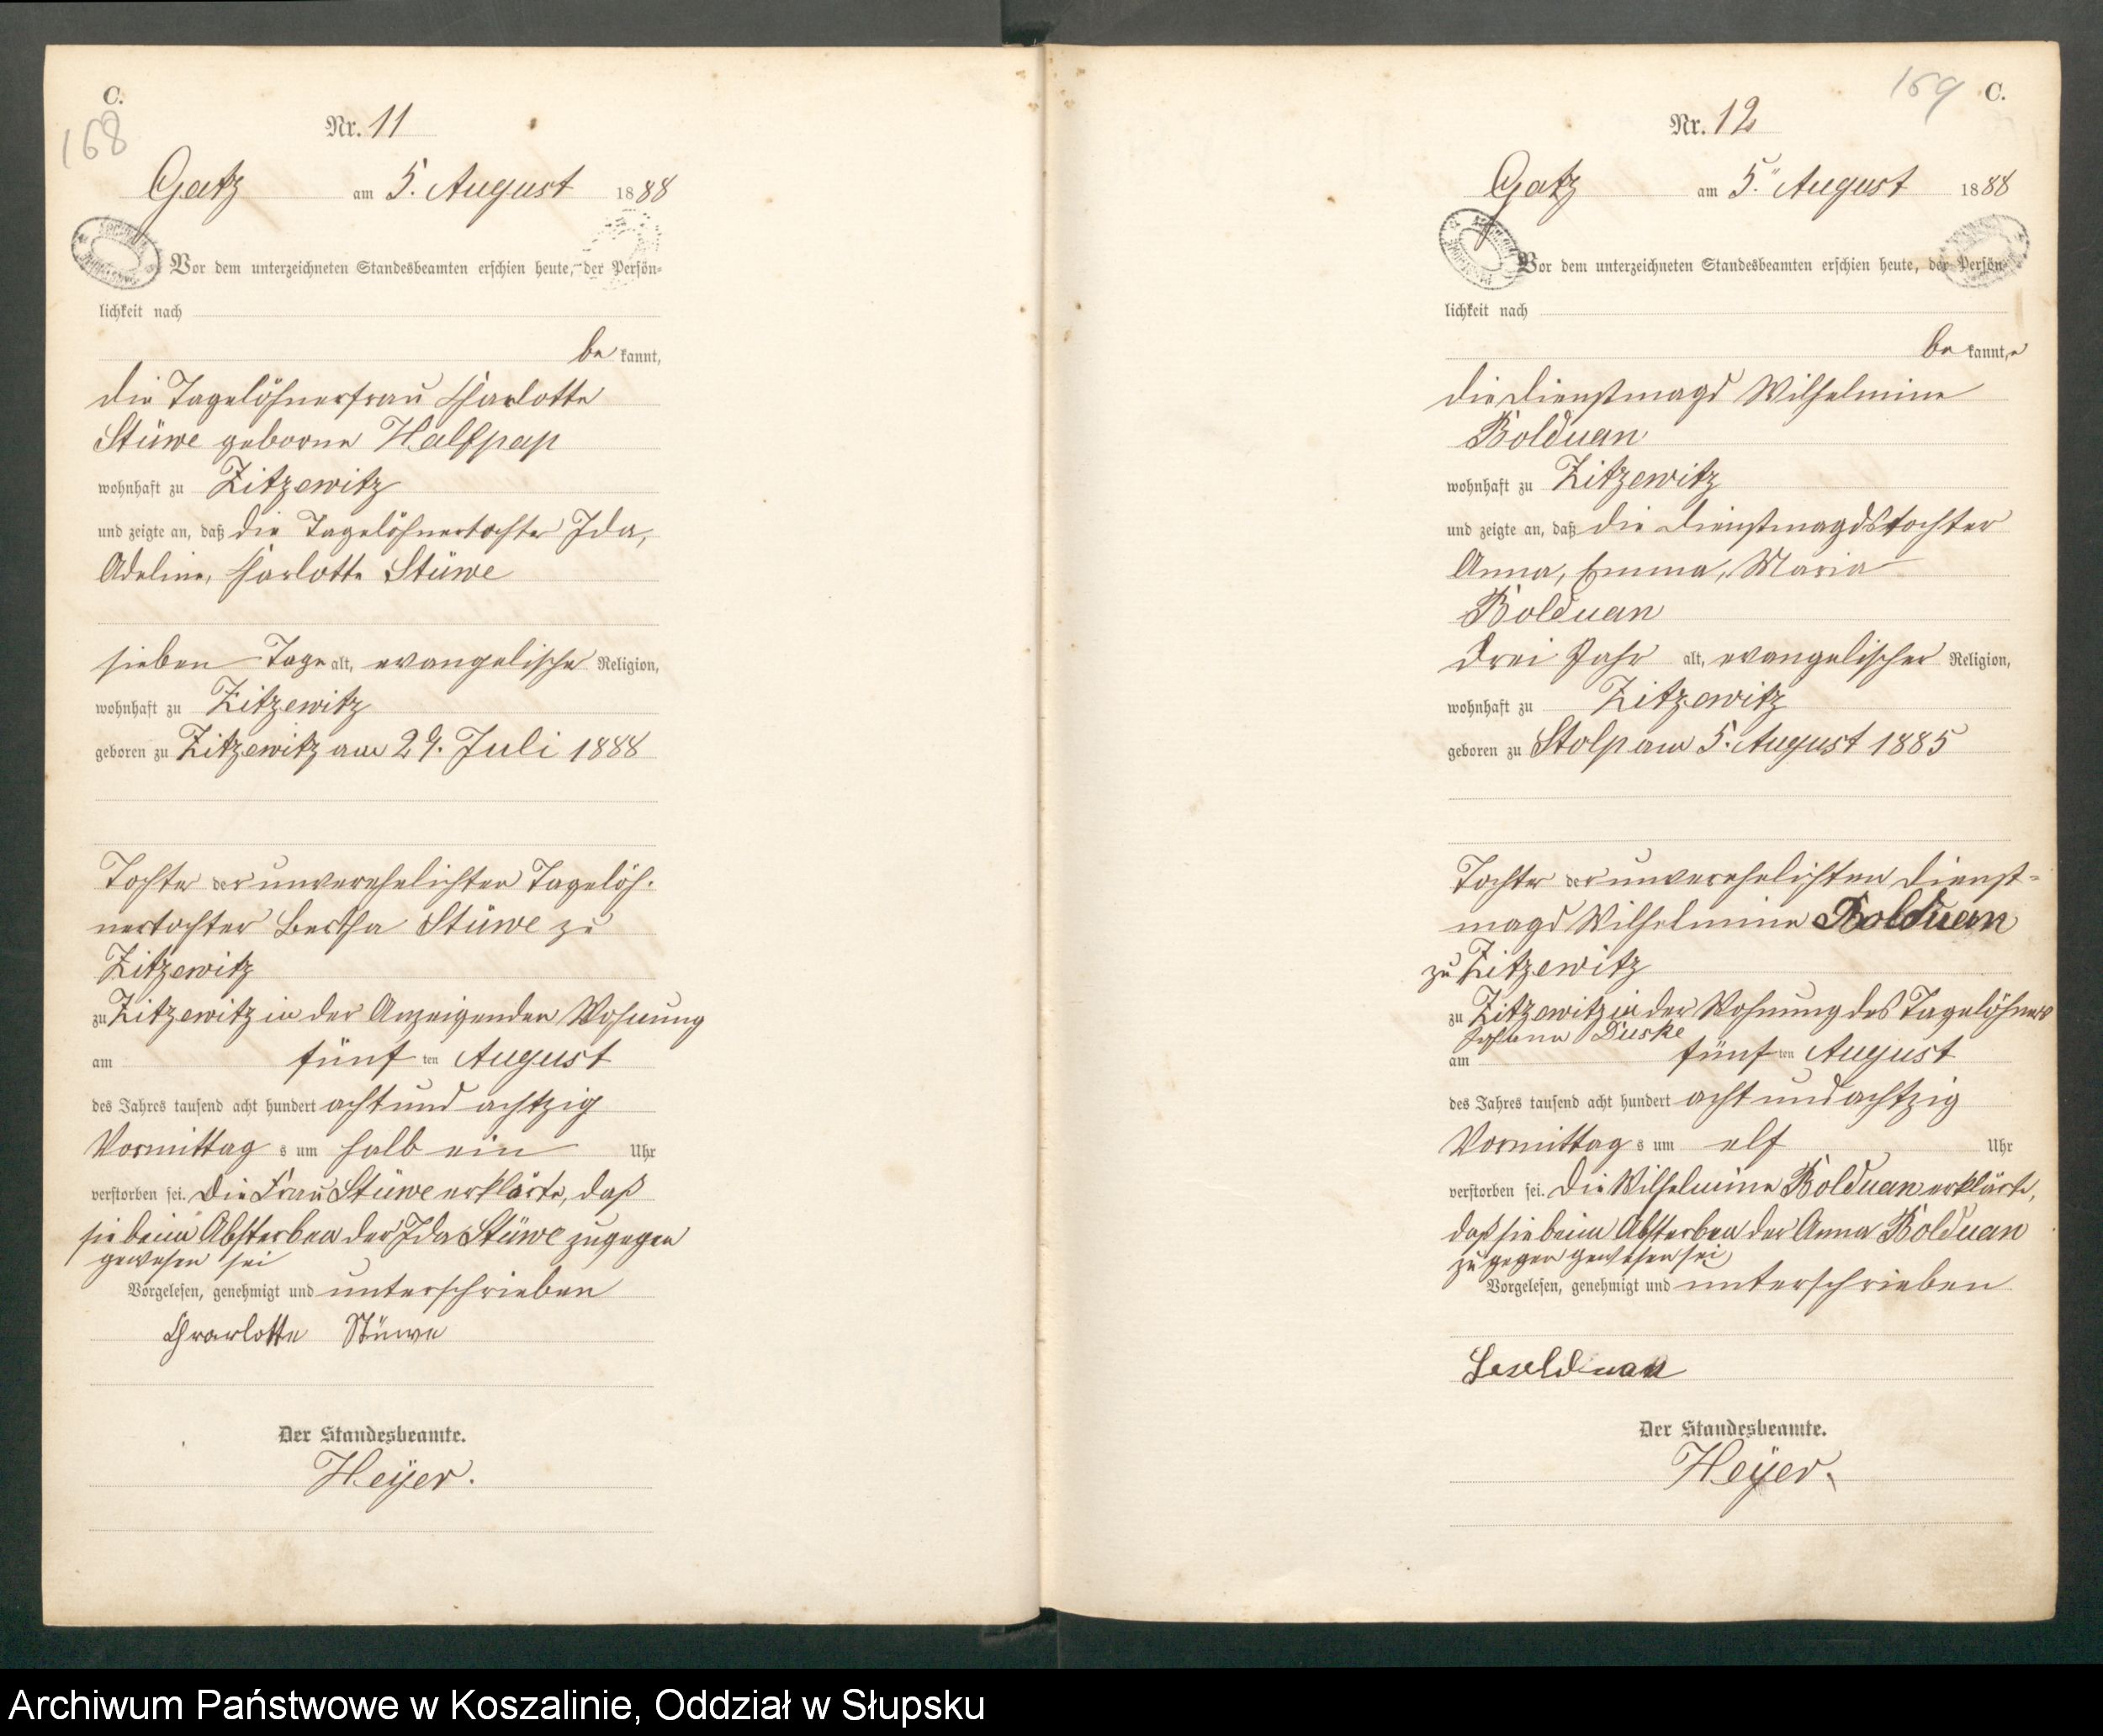 C.
168
Nr. 11
Gatz am 5. August 1888
Vor dem unterzeichneten Standesbeamten erschien heute, der Persön-
lichkeit nach
be kannt,
die Tagelöhnerfrau Charlotte
Stüwe geborne Halfpap
wohnhaft zu Zitzewitz
und zeigte an, daß die Tagelöhnertochter Ida,
Adeline, Charlotte Stüwe
sieben Tage alt, evangelischer Religion,
wohnhaft zu Zitzewitz
geboren zu Zitzewitz am 29. Juli 1888
Tochter der unverehelichten Tagelöh-
nertochter Bertha Stüwe zu
Zitzewitz
zu Zitzewitz in der Anzeigenden Wohnung
am fünf ten August
des Jahres tausend acht hundert acht und achtzig
Vormittag s um halb ein Uhr
verstorben sei. Die Frau Stüwe erklärte, daß
sie beim Absterben der Ida Stüwe zugegen
gewesen sei
Vorgelesen, genehmigt und unterschrieben
Charlotte Stüwe
Der Standesbeamte.
Heyer.
169 C.
Nr. 12
Gatz am 5. August 1888
Vor dem unterzeichneten Standesbeamten erschien heute, der Persön-
lichkeit nach
be kannt,
die Dienstmagd Wilhelmine
Bolduan
wohnhaft zu Zitzewitz
und zeigte an, daß die Dienstmagdstochter
Anna, Emma, Maria
Bolduan
drei Jahr alt, evangelischer Religion,
wohnhaft zu Zitzewitz
geboren zu Stolp am 5. August 1885
Tochter der unverehelichten Dienst-
magd Wilhelmine Bolduan
zu Zitzewitz
zu Zitzewitz in der Wohnung des Tagelöhners
Johann Duske
am fünf ten August
des Jahres tausend acht hundert acht und achtzig
Vormittag s um elf Uhr
verstorben sei. Die Wilhelmine Bolduan erklärte,
daß sie beim Absterben der Anna Bolduan
zugegen gewesen sei
Vorgelesen, genehmigt und unterschrieben
Der Standesbeamte.
Heyer.
Archiwum Państwowe w Koszalinie, Oddział w Słupsku